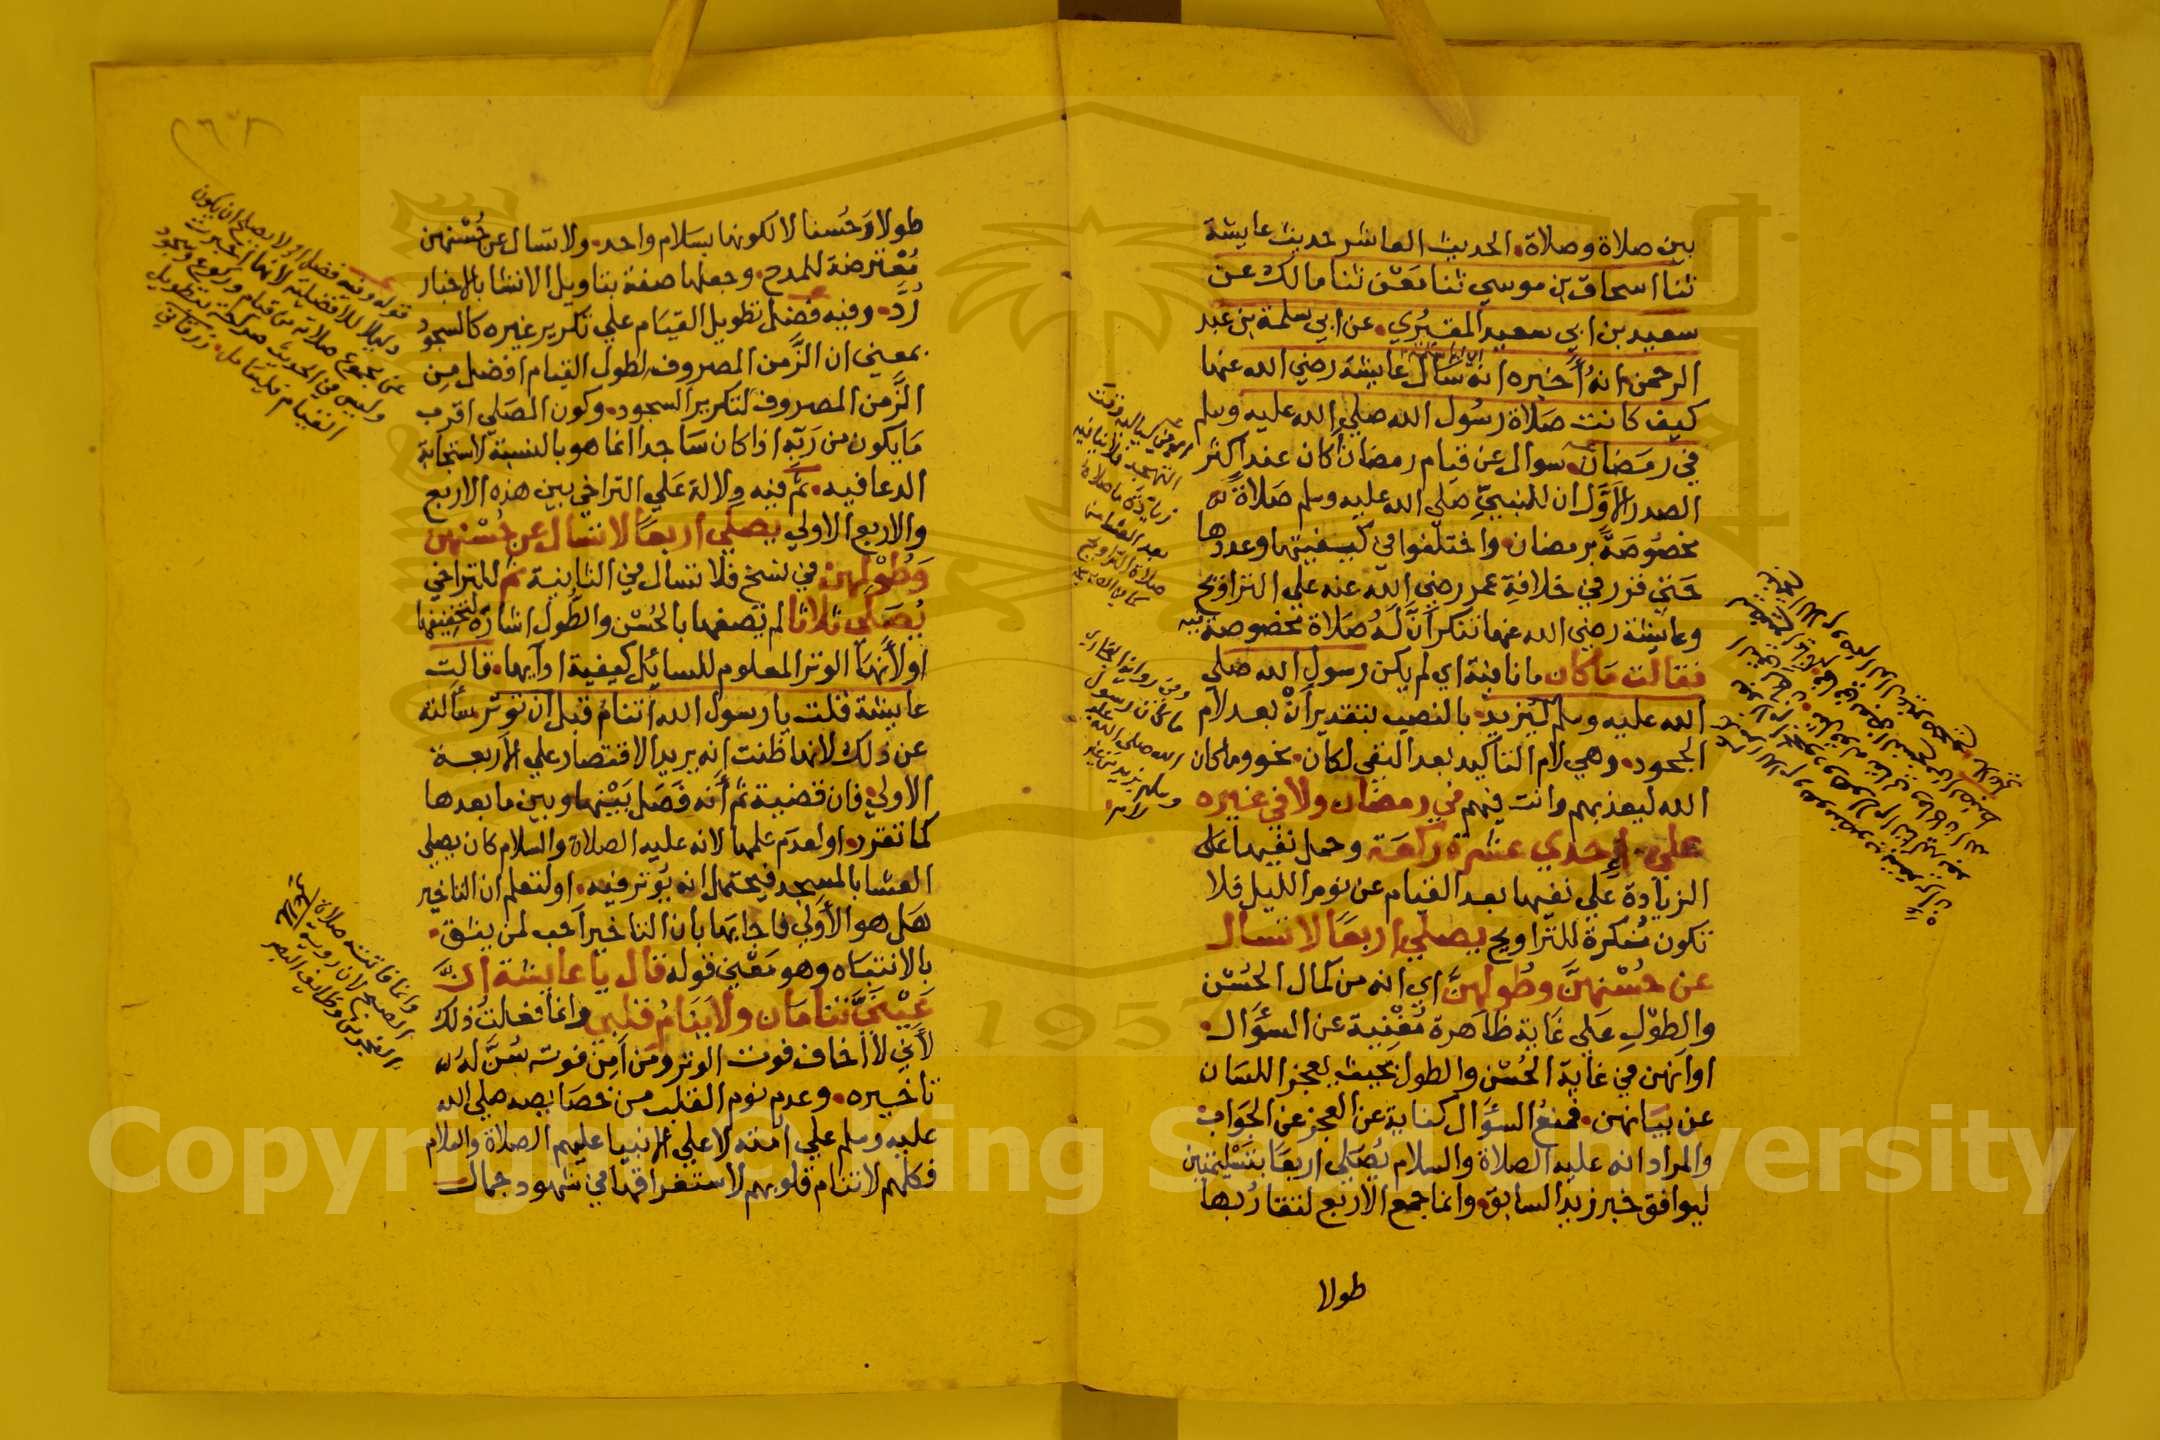 بين صلاة وصلاة. الحديث العاشر حديث عايشة
ثنا اسحاق بن موسي ثنا معن ثنا مالك عن
سعيد بن ابي سعيد المقبُري. عن ابي سلمة بن عبد
الرحمن انهُ أَخبره انه سَأل عايشة رضي الله عنها
كيف كانت صَلاة رسُول الله صلي الله عليه وسلم
في رمَضان. سوال عن قيام رمضان أكان عند اكثر
الصدر الاَوَّل ان للنبيّ صَلي الله عليه وسلم صَلاةً
مخصُوصَةً برمضان. واختلفوا في كيفيتها وعددها
حَتي قرر في خلافةِ عمر رضي الله عنه علي التراويح
وعايشة رضي الله عنها تنكر أنَّ لَهُ صَلاة مخصوصة فيه
فقالت مَا كان ما نافية اي لم يكن رسول الله صَلي
الله عليه وسلم ليَزيدَ. بالنصب بتقدير أنْ بعد لام
الجحود. وهي لام التاكيد بعد النفي لكان. نحو وما كان
الله ليعذبهم وانت فيهم في رمضان ولا في غيره
علي إحدي عشرة ركعَة وحمل نفيها علي
الزيادة عَلي نفيها بعد القيام عن نوم الليل فلا
تكون مُنكرة للتراويح يصلي اربعًا لا تسال
عن حُسْنهنَّ وطُولهنَّ اي انه من كمال الحُسْن
والطولِ عَلي غَاية ظاهرة مُغْنية عن السؤَال.
او انهن في غاية الحُسْن والطول بحيث يعجز اللسَان
عن بيَانهن. فمنعُ السؤَال كناية عن العجز عن الجَواب
والمراد انه عليه الصلاة والسلام يُصَلي اربعًا بتسْليمتين
ليوافق خبر زيد السابق. وانما جمع الاَربع لتقارُبها
طولا
طولا وَحُسنا لا لكونها بسَلام واحد. ولا تسَال عن حُسْنهن
مُعْترضة للمدح. وجعلها صفة بتاويل الانشا بالاخبار
رُدَّ. وفيه فضل تطويل القيَام علي تكرير غيره كالسجود
بمعني ان الزَّمن المصروف لطول القيام افضل مِن
الزَّمن المصروف لتكرير السجود. وكون المصَلي اقرب
مَا يكون من رَبّه اذا كان سَاجدا انما هو بالنسبة لاستجابة
الدعا فيه. ثمَّ فيه دلالة عَلي التراخي بين هذه الاربع
والاربع الاولي يصَلي اربعًا لا تسال عن حُسْنهن
وَطُوْلِهن في نسخ فلا تسال في الثانية ثم للتراخي
يُصَلي ثلاثا لم تصفها بالحُسْن والطُول اشارَة لتخفيفها
او لأنهَا الوتر المعلوم للسايَل كيفية ادآيها. قالت
عايشة قلت يا رسول الله اتنامُ قبل ان توتر سَألته
عن ذلك لانها ظنت انه يريد الاقتصار علي الاَربعة
الاولي. فان قضية ثمَّ أنه فَصَل بَيْنها وبين ما بعدها
كما تقرر. او لعدم علمها لانه عليه الصلاة والسلام كان يصلي
العشا بالمسجد فيحتمل انه يُوتر فيه. او لتعلم ان التاخير
هَل هو الأولي فاجابَها بان التاخير اَحب لمن يثق.
بالانتبَاه وهو مَعْني قوله قال يا عايشة إنَّ
عَيْنَيَّ تنامَان ولا يَنَامُ قلبي وانما فعلتُ ذلك
لأني لا أخاف فوت الوتر ومن اَمِن فوته سُنَّ لهُ
تاخيره. وعدم نوم القلب من خصَايصه صلي الله
عليه وسلم علي امته لا علي الانبيا عليهم الصلاة والسلام
فكلهم لا تنام قلوبهم لاستغراقها في شهود جمال
قوله وفيه فضل الخ لا يصلح ان يكون
دليلا للافضلية لانها اخبرت
عن مجموع صلاته من قيام وركوع وسجود
وليس في الحديث
القيام فليتامل. زرقاني
وفي رواية البخاري
ما كان رسول
الله صلي الله عليه
وسلم يزيد
Copyright © King Saud University
1957